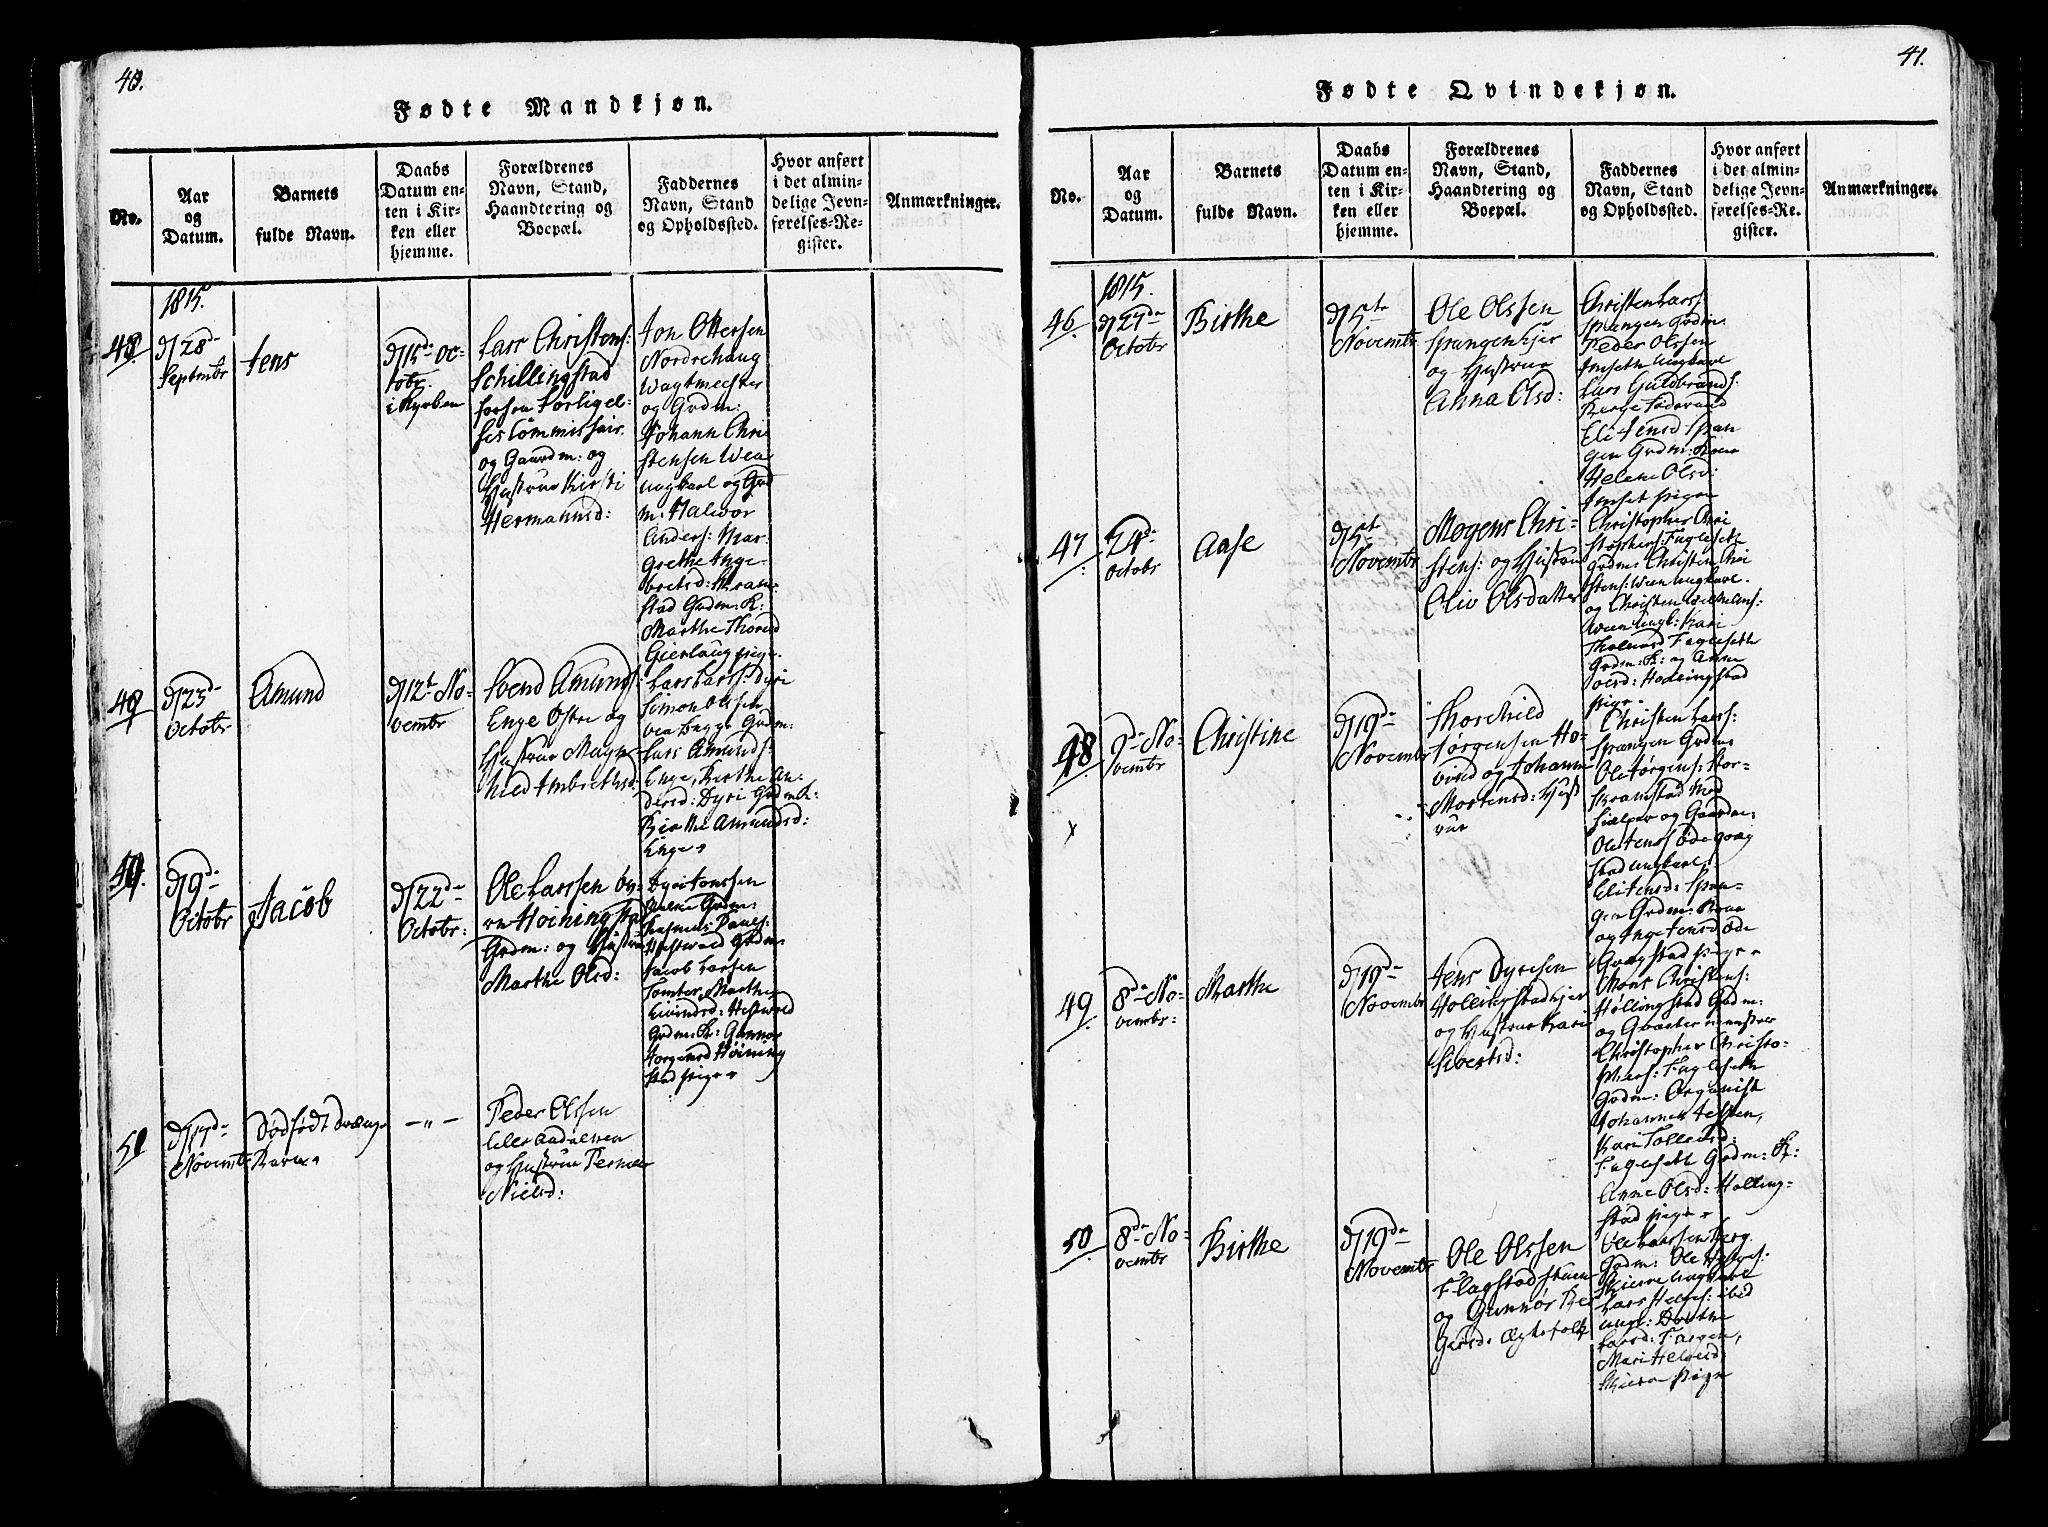 40.
Fødte Mandkjøn.
No.
Aar
og
Datum.
Barnets
fulde Navn.
Daabs
Datum en-
ten i Kir-
ken eller
hjemme.
Forældrenes
Navn, Stand,
Haandtering og
Boepæl.
Faddernes
Navn, Stand
og Opholdssted.
Hvor anført
i det almin-
delige Jevn-
førelses-Re-
gister.
Anmærkninger.
1815.
48
d/28de
Septembr
Jens
d/15de Oc-
tobr.
i Kyrken
Lars Christens:
Schillingstad
Forligel-
ses Commissair
og Gaardm: og
Hustrue Kirsti
Hermannsd:
Jon Ottersen
Nordrehaug
Wagtmester
og Grdm:
Johann Chri
stensen
ungkarl og Grd
m: Halvor
Anders:
Grethe Inge-
bretsd:
stad Grdm: K:
Marthe Thoresd
pige.
49
d/23de
Octobr
Amund
d/12te No-
vembr
Svend Amunds:
Enge Østre og
Hustrue Magn-
hild Imbrethsd:
Lars Larss: Dyri
Simon Olssen
Grdm:
Lars Amunds:
Enge, Birthe An-
dersd: Dyri Grdm K:
Birthe Amundsd:
Enge
50.
d/9de
Octobr
Jacob
d/22de
Octobr:
Ole Larssen
Høiningstad
Grdm: og Hustrue
Marthe Olsd:
Dyri Jonssen
Grdm:
Rasmus Pauls:
Grdm:
Jacob Larsen
Tomter, Marthe
Eivindsd:
Grdm: K: Gunnor
Jørgensd Høining
stad pige
51
d/17de
Novembr
Dødfødt Drenge
Barn
— " —
Peder Olssen
og Hustrue
Nielsd:
41.
Fødte Qvindekjøn.
No.
Aar
og
Datum.
Barnets
fulde Navn.
Daabs
Datum en-
ten i Kir-
ken eller
hjemme.
Forældrenes
Navn, Stand,
Haandtering og
Boepæl.
Faddernes
Navn, Stand
og Opholdssted.
Hvor anført
i det almin-
delige Jevn-
førelses-Re-
gister.
Anmærkninger.
1815.
46
d/27de
Octobr
Birthe
d/5te
Novembr
Ole Olssen
Spangen Eier
og Hustrue
Anna Olsd:
Christen Larss
Spangen Grdm:
Peder Olssen
Imseth Ungkarl
Lars Guldbrands:
Berge
Eli Jensd: Span
gen Grdm: Kone
Helene Olsd:
Imset pigen
47
24de
Octobr
Aase
d/5te
Novembr
Mogens Chri-
stens: og Hustrue
Oliv Olsdatter
Christopher Chri
stophers: Fuglset
Grdm: Christen Chri
stens: Ween Ungkarl.
og Christen
Ween Ungk: Kari
Fuglseth
Grdm: K: og Anne
pige.
48
9de No-
vembr
Christine
d/19de
Novembr
Thorchild
Jørgensen Ho-
vind og Johanne
Mortensd: Hust
rue
Christen Larss:
Spangen Grdm:
Ole Jørgens: Nor-
skramstad Med
hielper og Gaardm:
Ole Jenss Ødegaag
stad ungkarl:
Eli Jensd: Span-
gen Grdm: Kone
og Inge Jensd Øde
Gaagstad pige
x
49
8de No-
vembr:
Marthe
d/19de
Novembr
Jens Dyresen
Hollingstad Eier
og Hustrue Kari
Sivertsd:
Mons Christens:
Høllingstad Grdm:
og Qvartermester
Christopher Christo-
phers: Fuglseth
Grdm: Organist
Johannes
Kari Tollefsd:
Fuglseth Grdm: K:
Anne Olsd: Holling-
stad pige
50
8de No-
vembr
Birthe
d/19de
Novembr
Ole Olssen
Flagstad
og Gunnor Bir
Gersd: Ægtefolk
Ole Larssen Berg
Grdm: Ole Helges:
Skierve Ungkarl
Lars Helges: ibid
ungk: Dorthe
Larsd:
Mari Helgesd:
Skierve pige